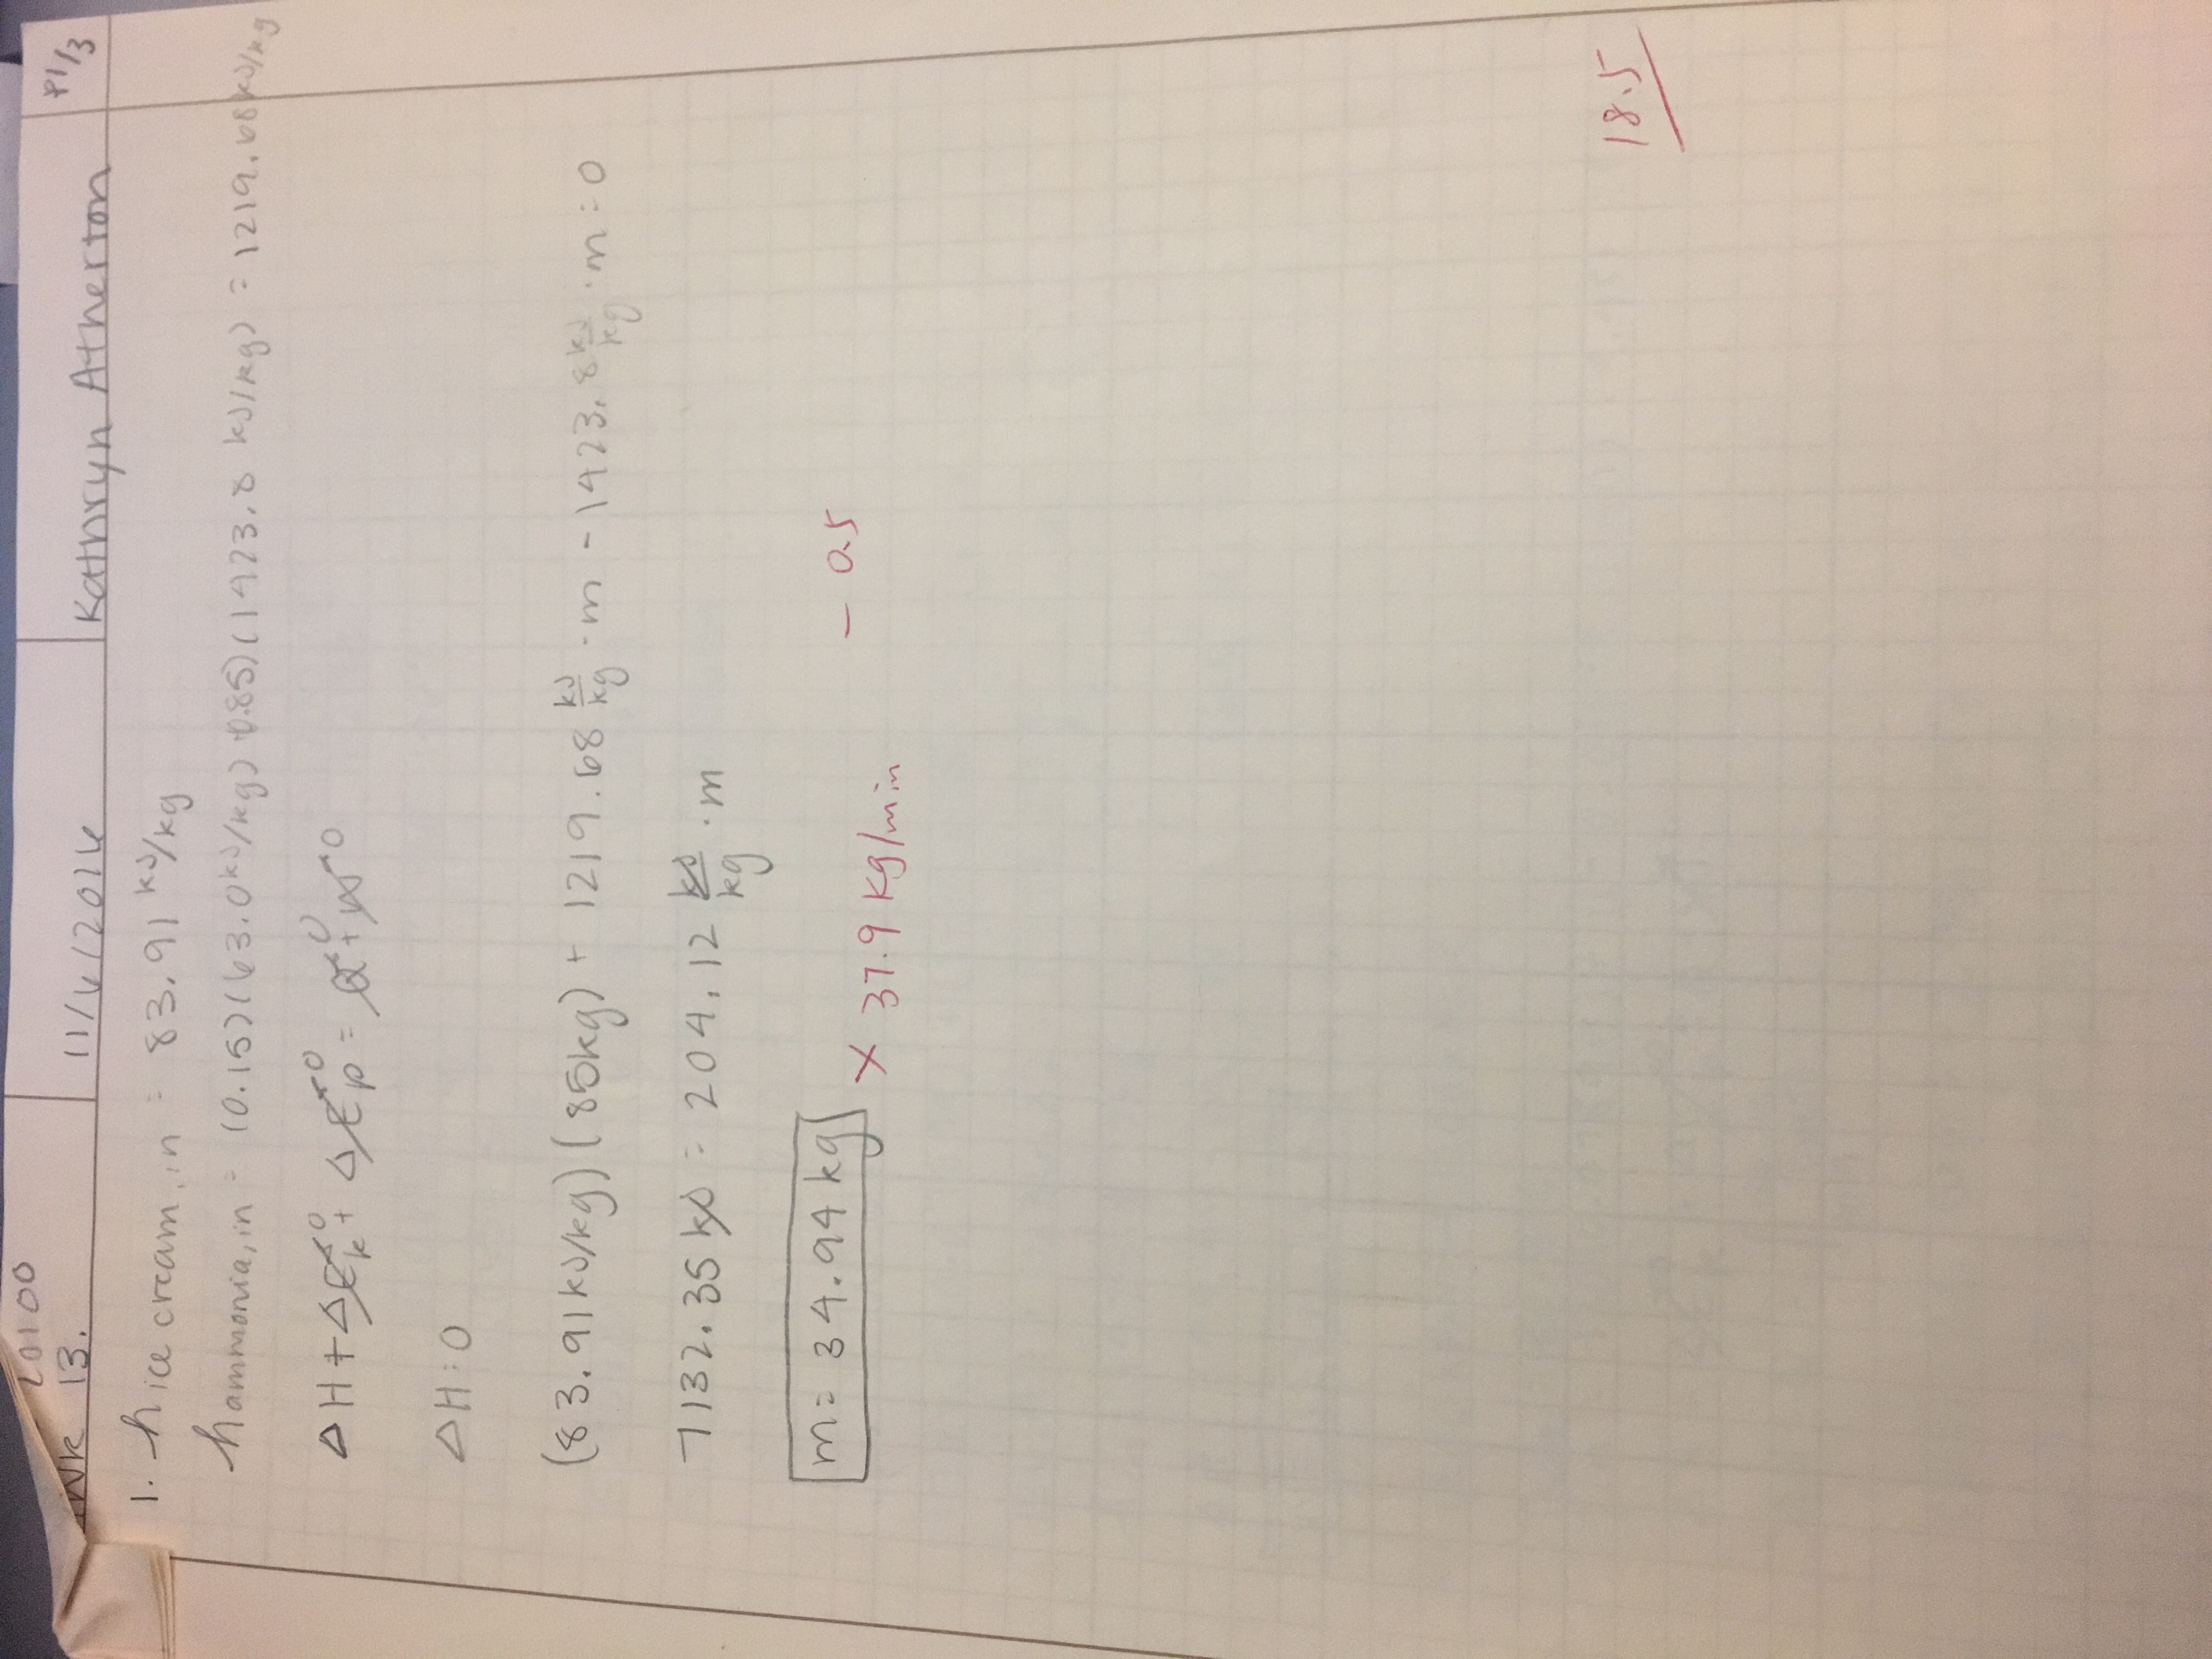 20100
HWK 13.
11/6/2016
Kathryn Atherton
P1/3
1. h ice cream, in = 83.91 kJ/kg
h ammonia, in = (0.15)(63.0 kJ/kg) + 0.85)(1423.8 kJ/kg) = 1219.68 kJ/kg
ΔH + ΔEk→0 + ΔEp→0 = Q→0 + W→0
ΔH = 0
(83.91 kJ/kg)(85kg) + 1219.68 kJ/kg · m - 1423.8 kJ/kg · m = 0
7132.35 kJ = 204.12 kJ/kg · m
m = 34.94 kg
× 37.9 kg/min
- 0.5
18.5